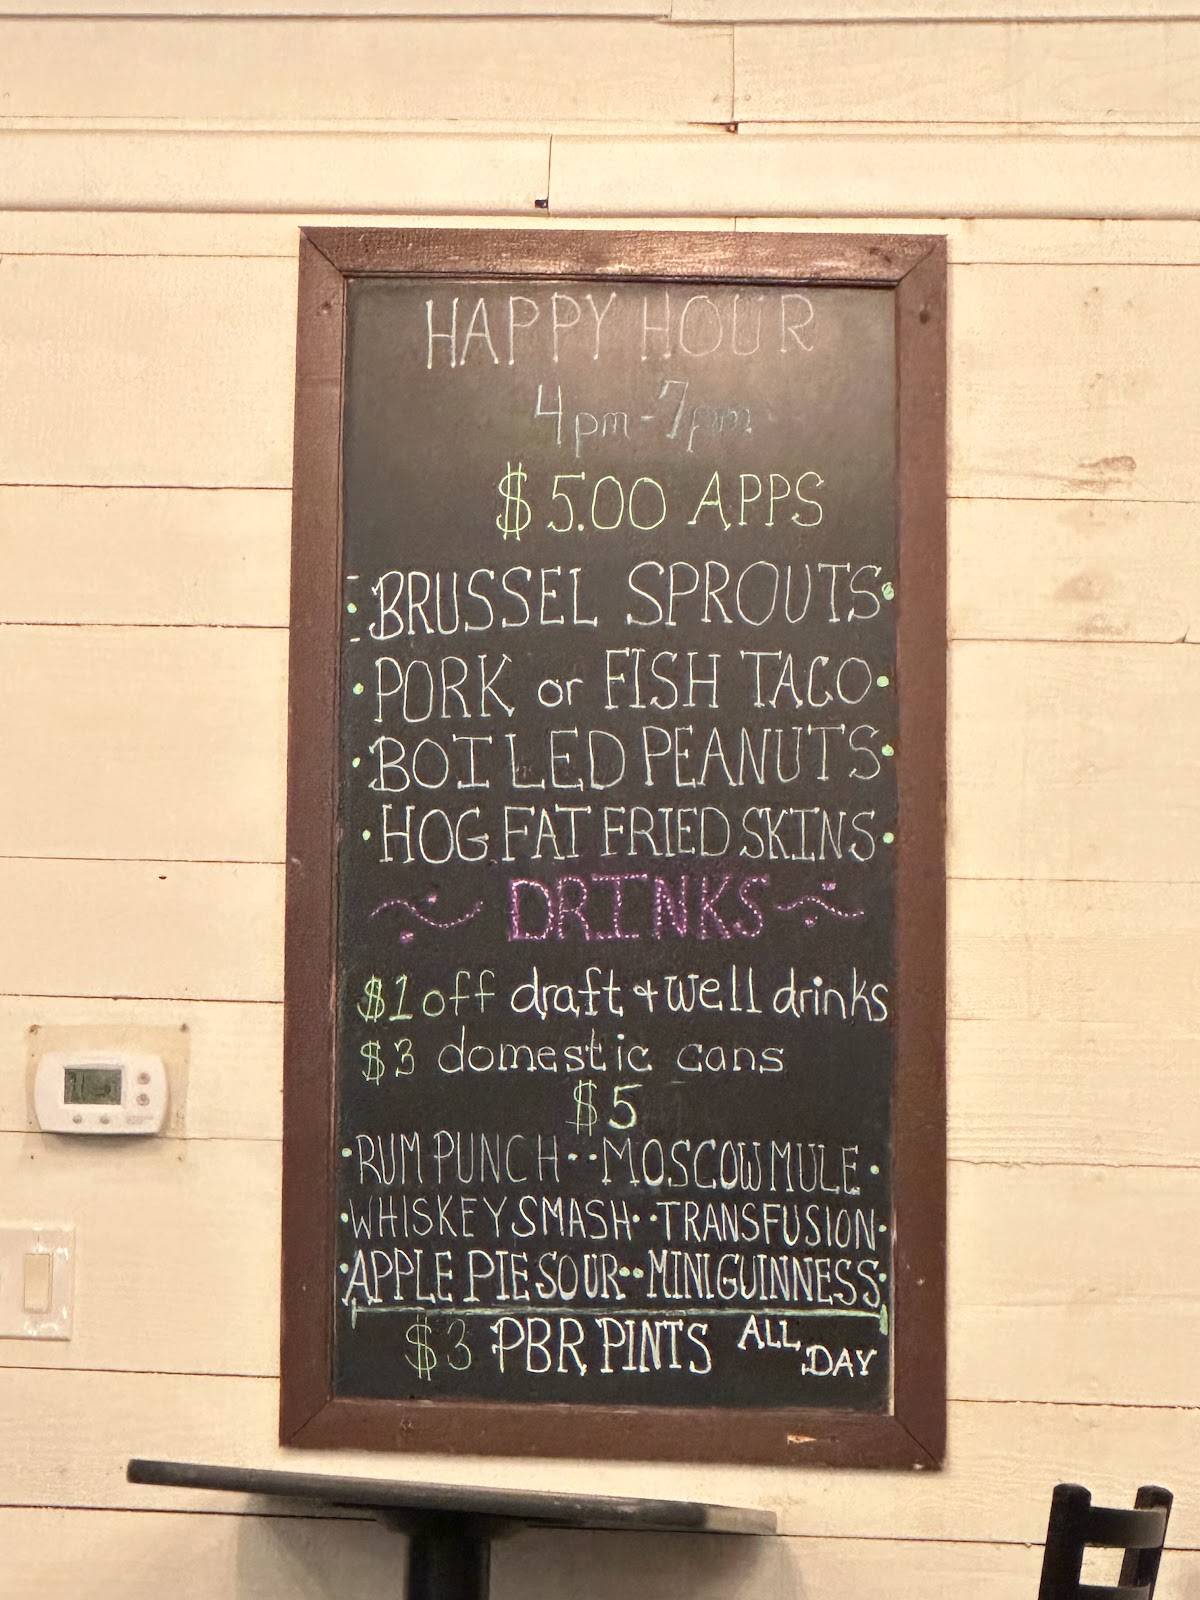 HAPPY HOUR
4pm-7pm
$5.00 APPS
• BRUSSEL SPROUTS •
• PORK or FISH TACO •
• BOILED PEANUTS •
• HOG FAT FRIED SKINS •
DRINKS
$1 off draft & well drinks
$3 domestic cans
$5
• RUM PUNCH • • MOSCOW MULE •
• WHISKEY SMASH • • TRANSFUSION •
• APPLE PIE SOUR • • MINI GUINNESS •
$3 PBR PINTS ALL DAY